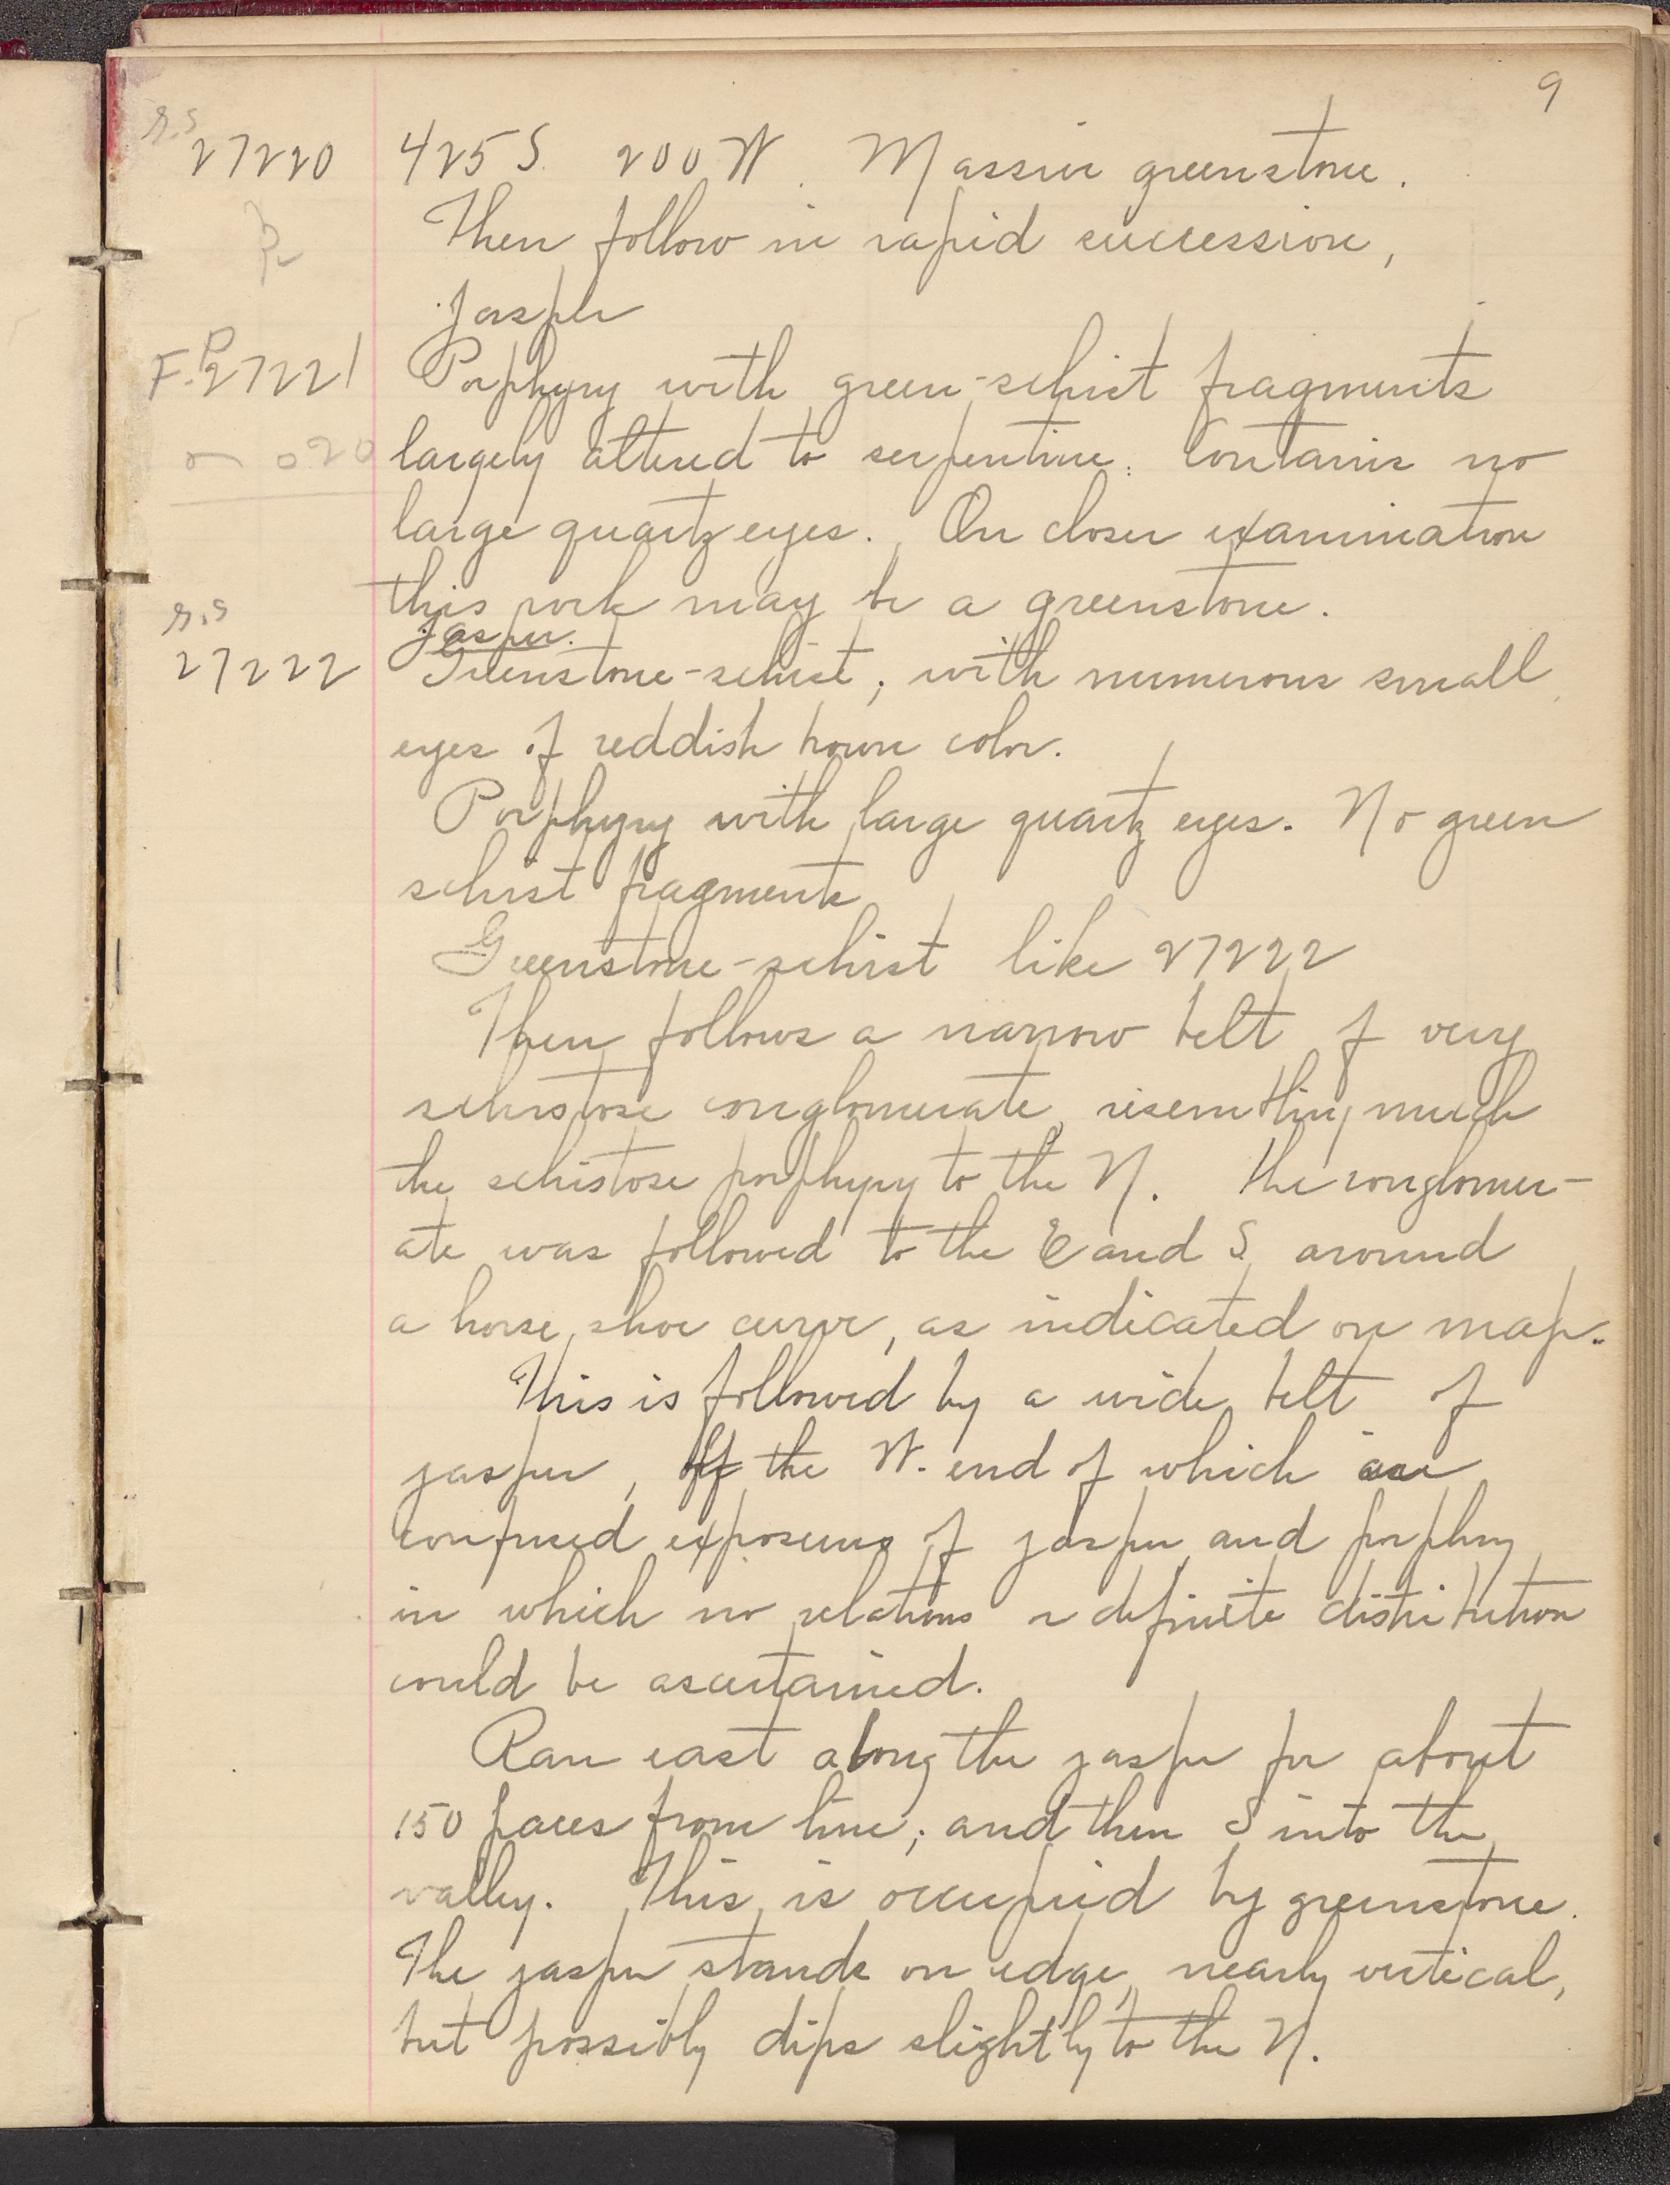 9
s.s
27220 425 S. 200 W. Massive greenstone.
Then follow in rapid succession,
Jasper
F.P. 27221 Porphyry with green-schist fragments
largely altered to serpentine. Contains no
large quartz eyes. On closer examination
this rock may be a greenstone.
s.s
Jasper.
27222 Greenstone-schist, with numerous small
eyes of reddish brown color.
Porphyry with large quartz eyes. No green
schist fragments
Greenstone-schist like 27222
Then follows a narrow belt of very
schistose conglomerate, resembling much
the schistose porphyry to the N. The conglomer-
ate was followed to the E and S around
a horse shoe curve, as indicated on map.
This is followed by a wide belt of
jasper, off the W. end of which are
confused exposures of jasper and porphry
in which no relations or definite distribution
could be ascertained.
Ran east along the jasper for about
150 paces from line; and then S into the
valley. This is occupied by greenstone.
The jasper stands on edge, nearly vertical,
but possibly dips slightly to the N.